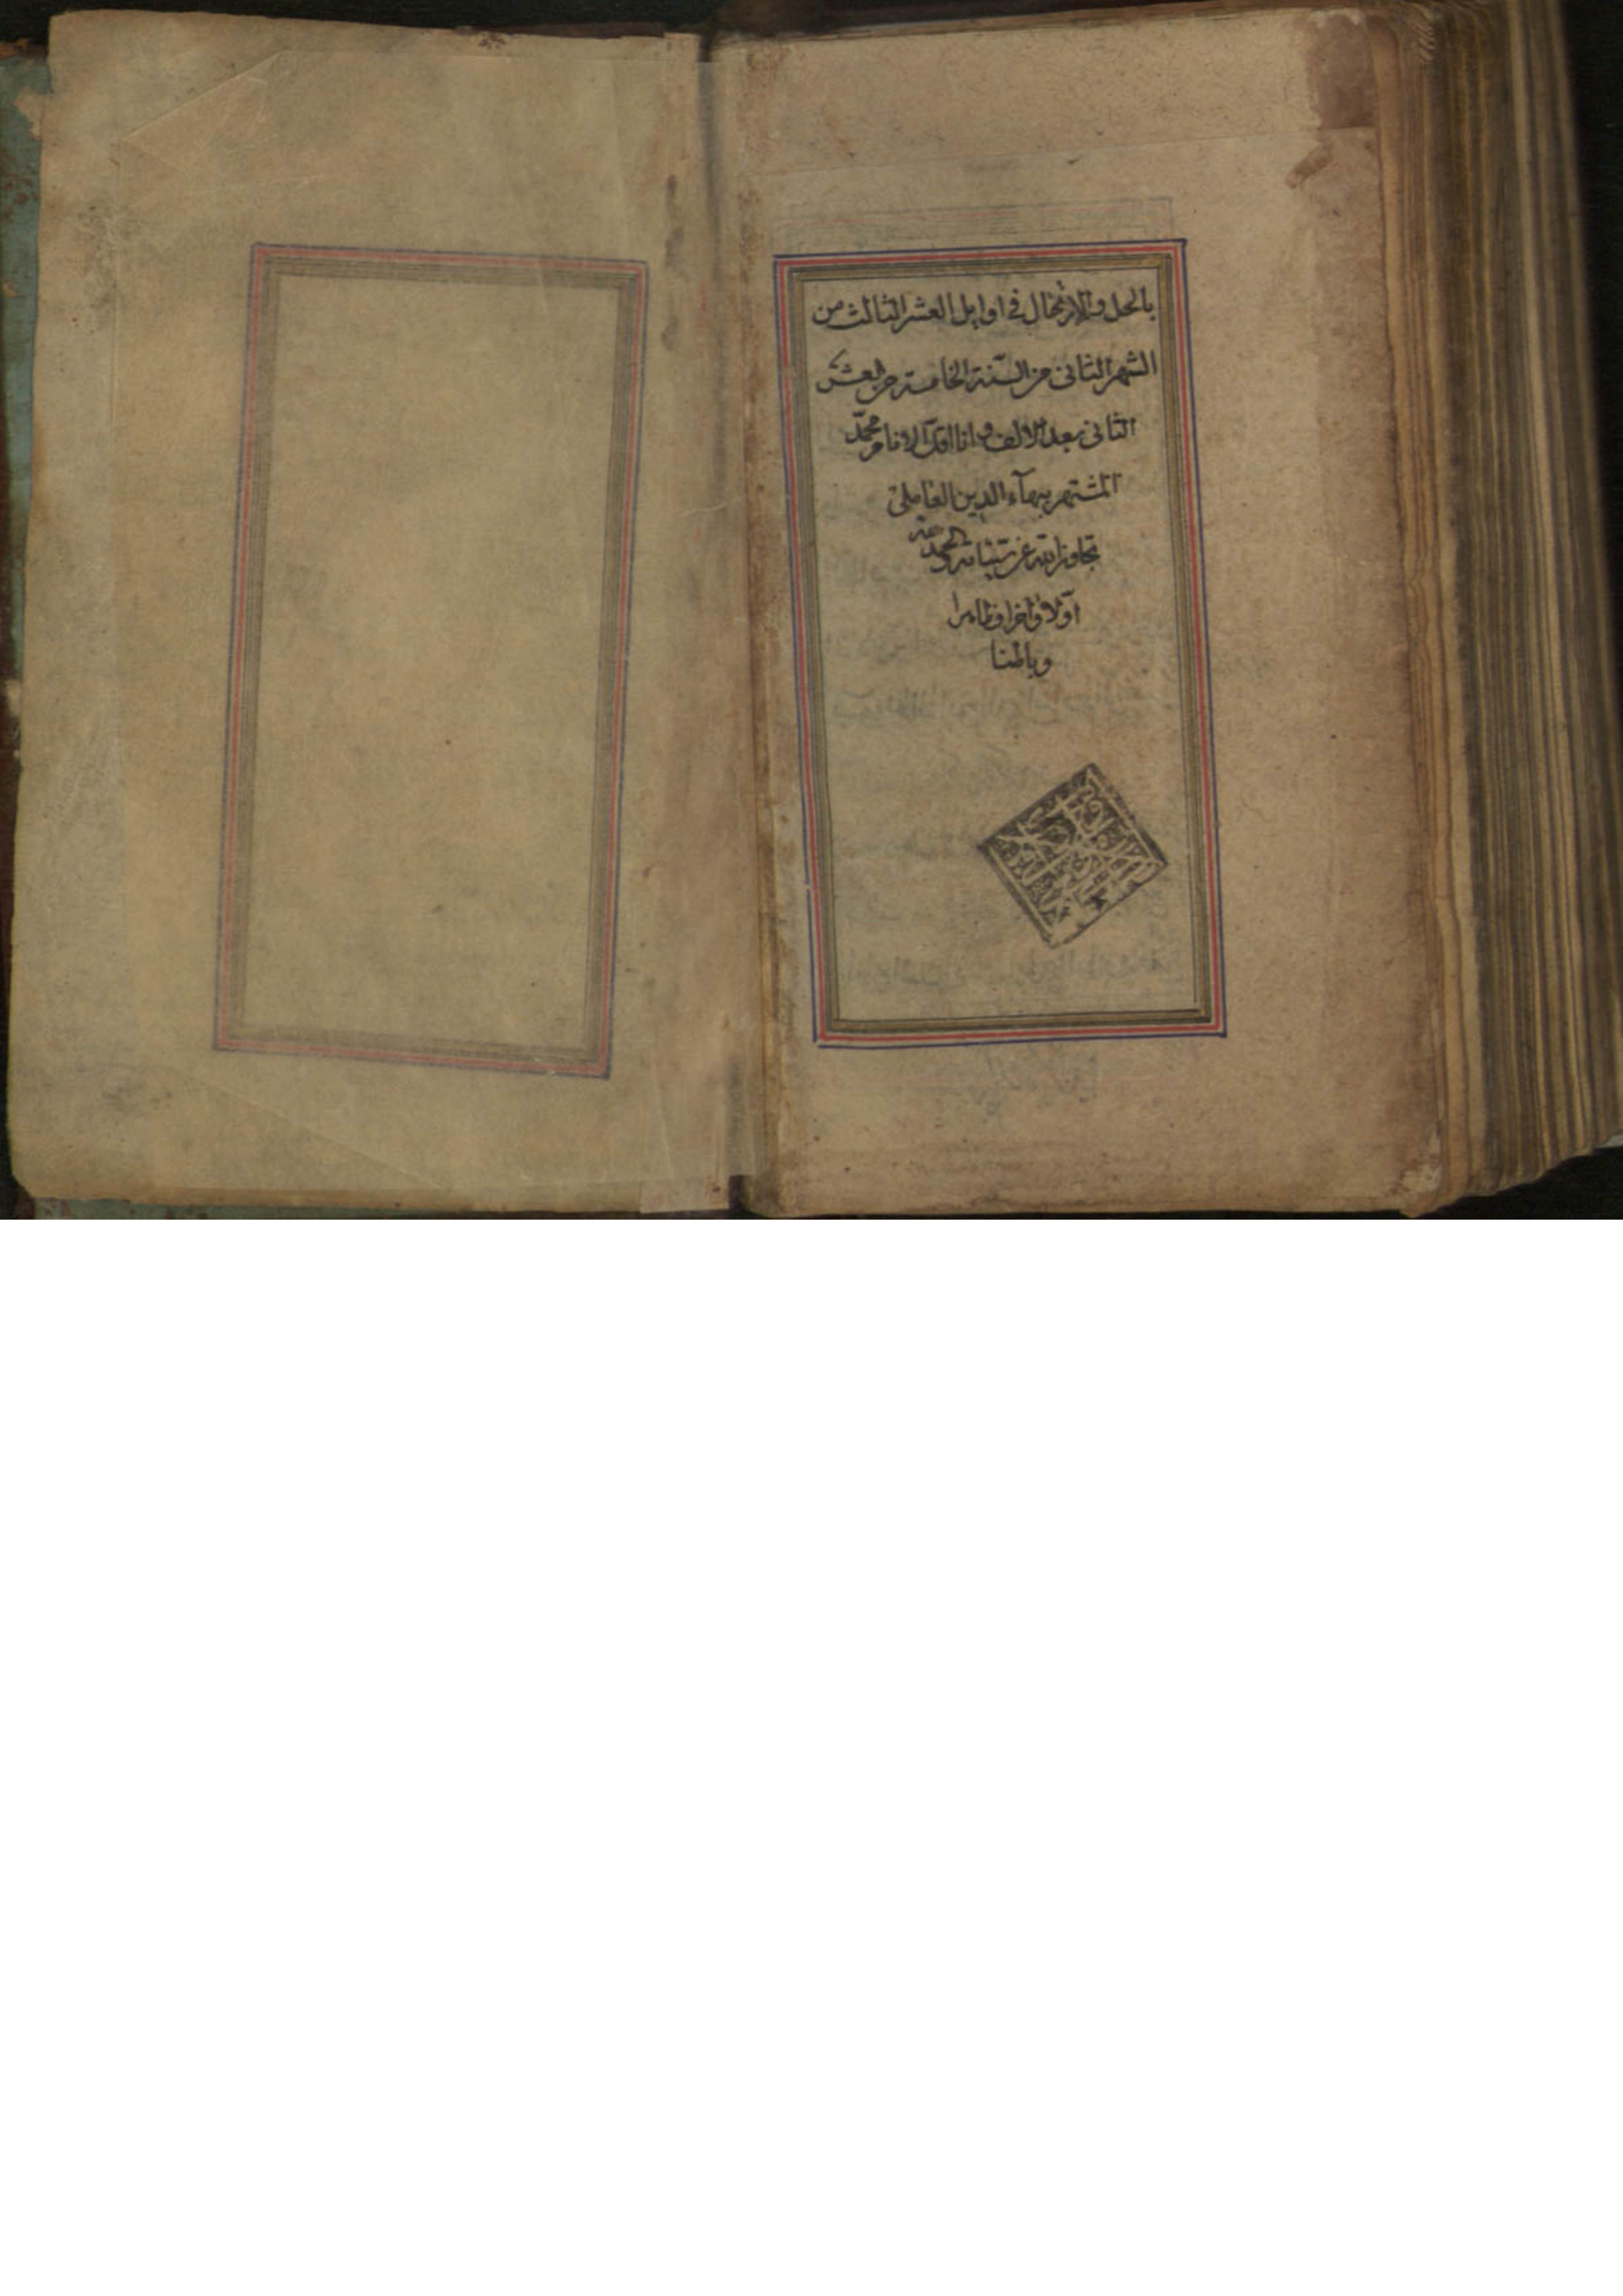 بالحل والارتحال في اوايل العشر الثالث من
الشهر الثاني من السّنة الخامسة من العشر
الثاني بعد الالف وانا اقلّ الانام محمّد
المشتهر ببهآء الدين العاملي
تجاوز الله عن سيّئاته والحمد لله
اوّلا واخرا وظاهرا
وباطنا